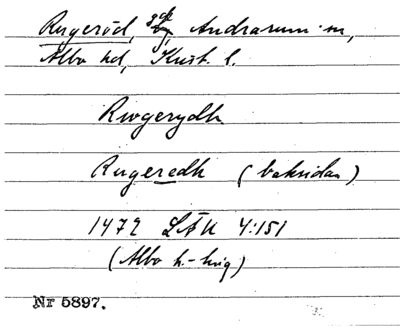 Rugeröd, gd, Andrarum sn,
Albo hd, Krist. l.
Rwgerydh
Rugeredh (baksidan)
1472 LÄU 4:151
(Albo h.-ling)
Nr 5897.